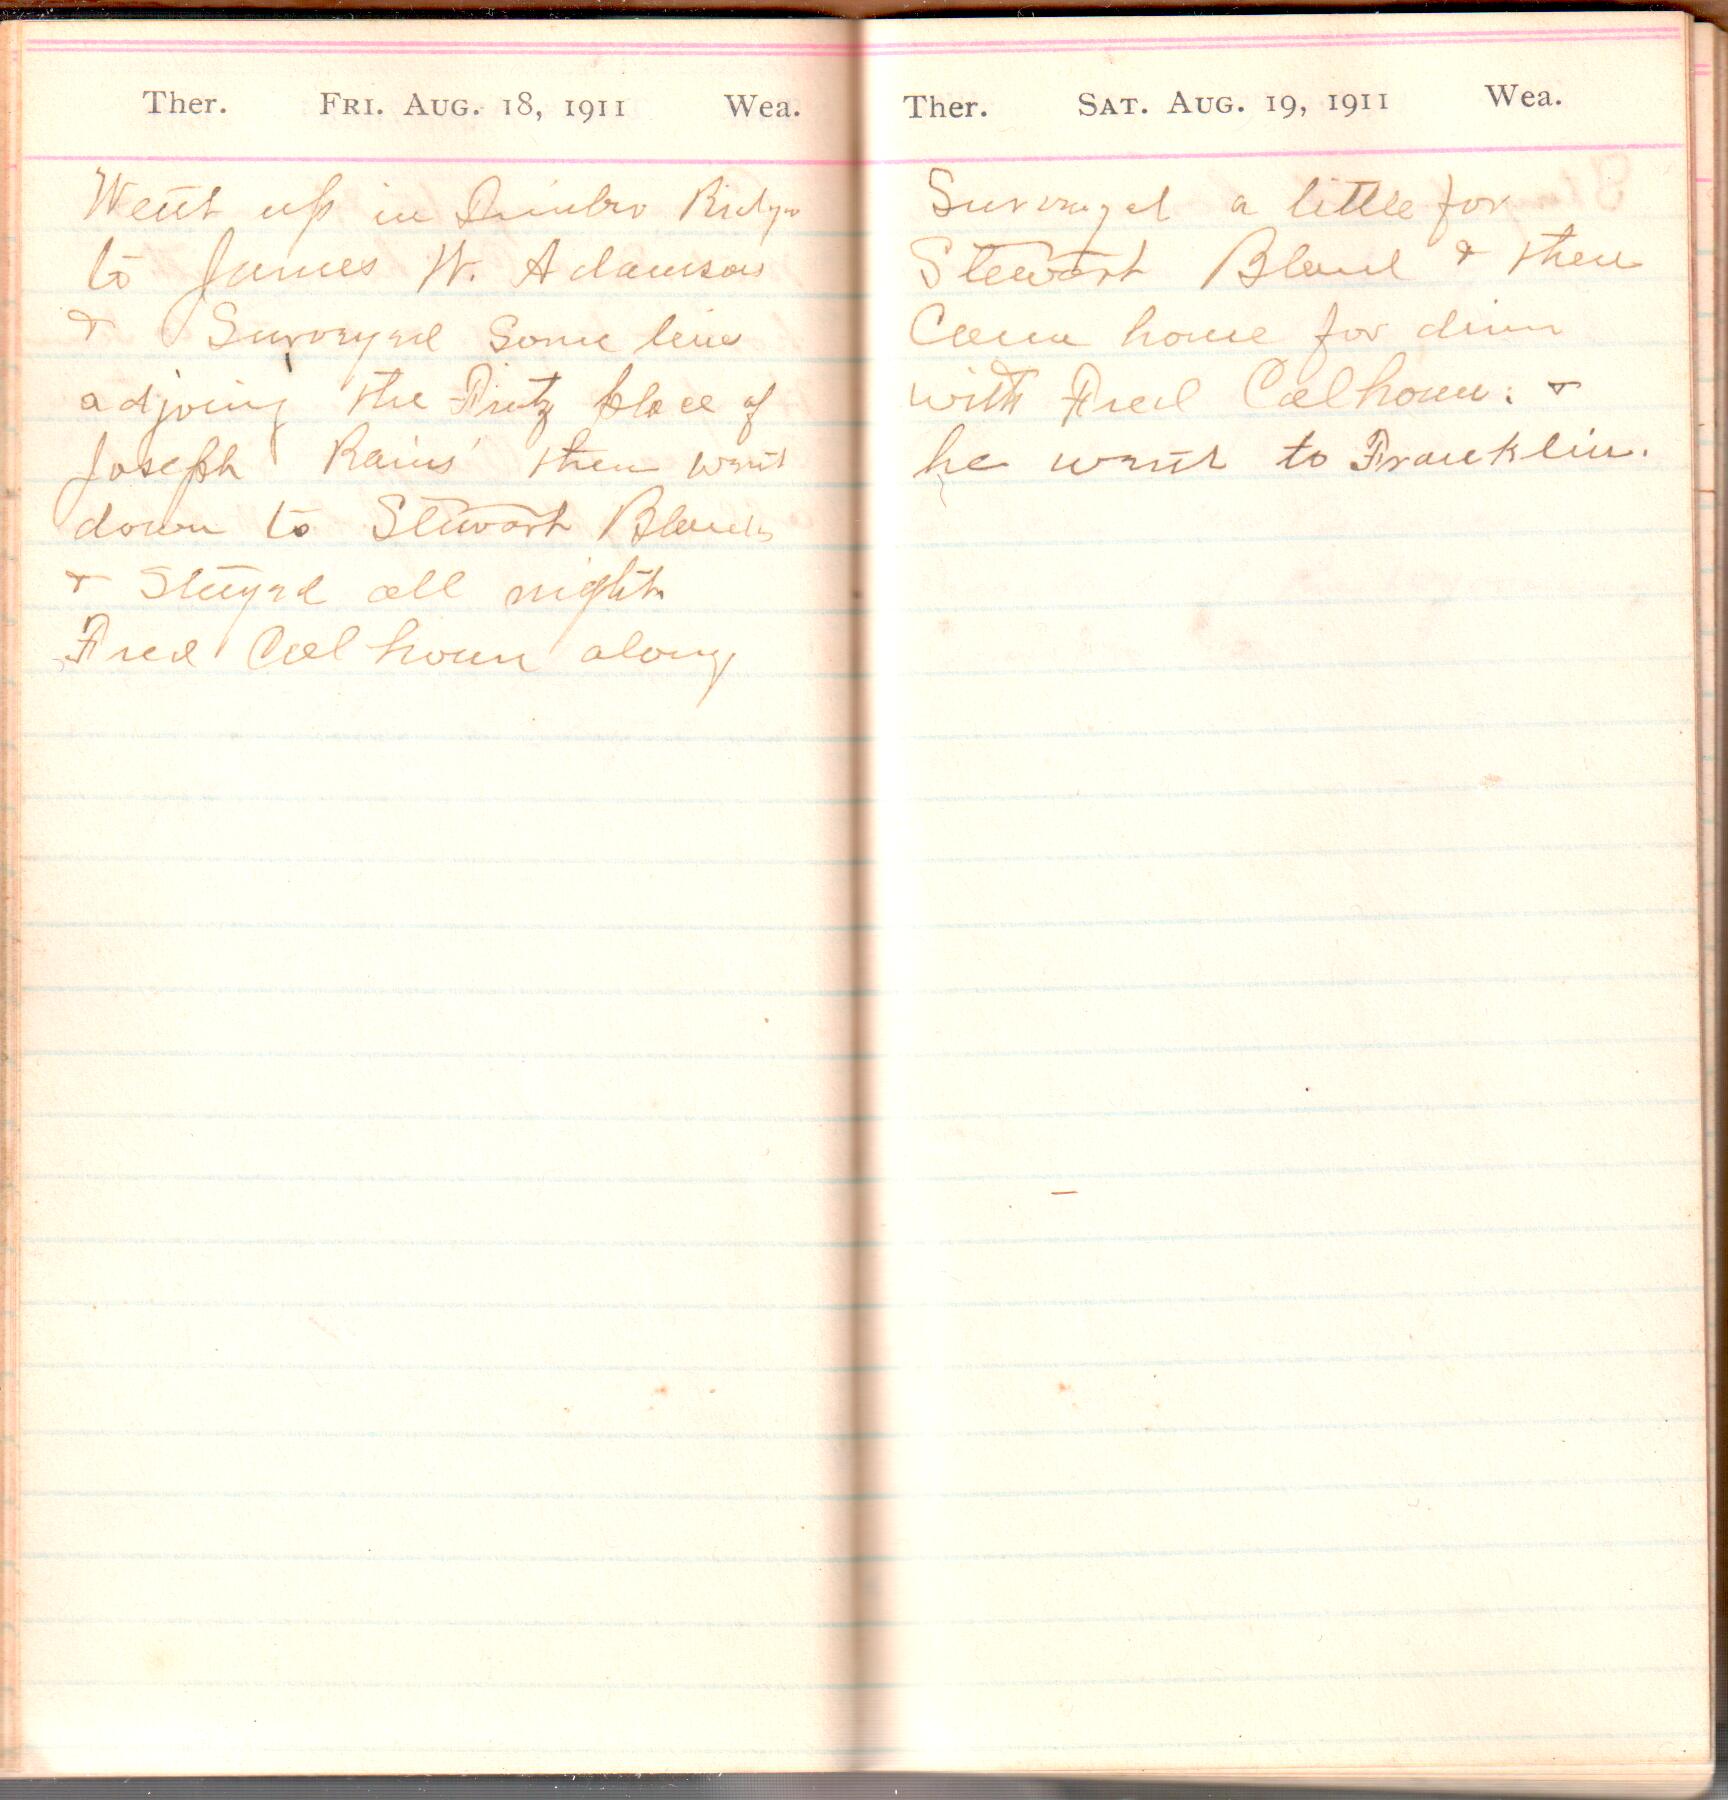 Ther. FRI. AUG. 18, 1911 Wea.
Went up in Ridge
to James W. Adamsons
& Surveyed Some line
adjoing the place of
Joseph Rains' then went
down to Stewart Blands
& Stayed all night
Fred Calhoun along
Ther. SAT. AUG. 19, 1911 Wea.
Surveyed a little for
Stewart Bland & then
Came home for dinn
with Fred Calhoun. &
he went to Franklin.